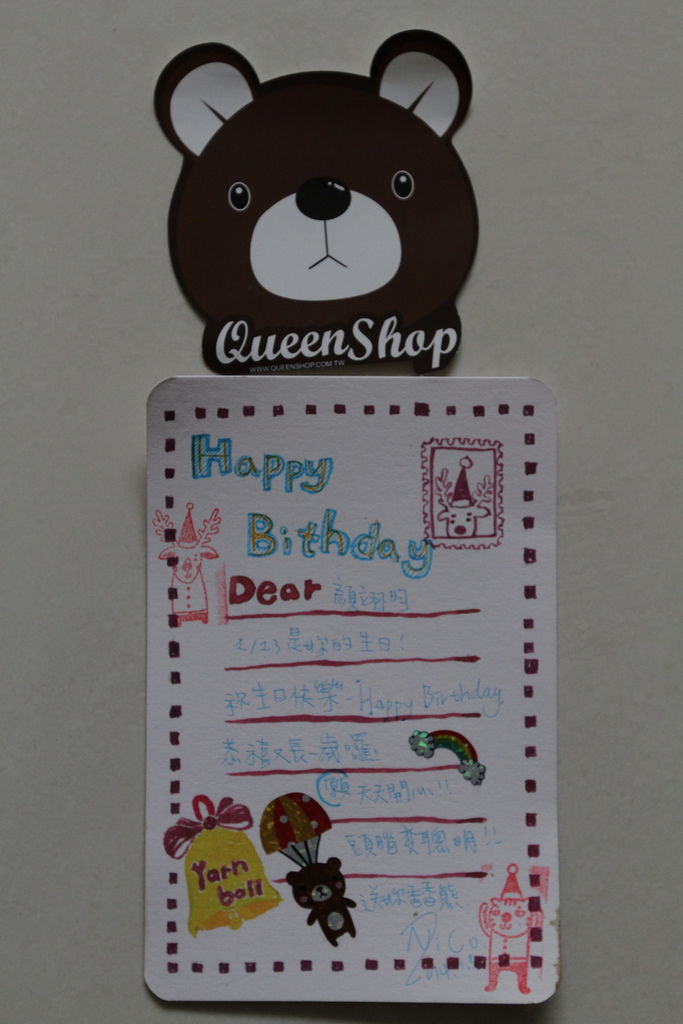 QueenShop
WWW.QUEENSHOP.COM.TW
Happy
Bithday
Dear 顏翊昀
1/23是妳的生日!
祝生日快樂-Happy Birthday.
恭禧又長一歲囉!
願天天開心!!
頭腦變聰明!!
送妳香香熊
Yarn
ball
NiCo